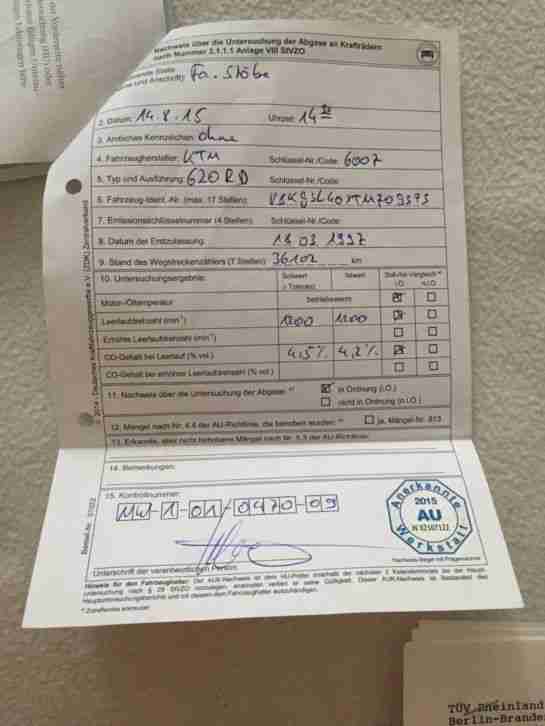 Nachweis über die Untersuchung der Abgase an Krafträdern
nach Nummer 3.1.1.1 Anlage VIII StVZO
Fa. Stöbe
2. Datum: 14.8.15 Uhrzeit: 14
3. Amtliches Kennzeichen: ohne
4. Fahrzeughersteller: KTM Schlüssel-Nr./Code: 6007
5. Typ und Ausführung: 620 RD Schlüssel-Nr./Code:
6. Fahrzeug-Ident.-Nr. (max. 17 Stellen):
7. Emissionsschlüsselnummer (4 Stellen): Schlüssel-Nr./Code:
8. Datum der Erstzulassung: 18.03.1997
9. Stand des Wegstreckenzählers (7 Stellen): 36102 km
10. Untersuchungsergebnis: Sollwert Istwert Soll-/Ist-Vergleich
± Toleranz i.O. n.i.O.
Motor-/Öltemperatur betriebswarm
Leerlaufdrehzahl (min⁻¹) 1200 1200
Erhöhte Leerlaufdrehzahl (min⁻¹)
CO-Gehalt bei Leerlauf (% vol.) 4,5% 4,2%
CO-Gehalt bei erhöhter Leerlaufdrehzahl (% vol.)
11. Nachweis über die Untersuchung der Abgase: in Ordnung (i.O.)
nicht in Ordnung (n.i.O.)
12. Mängel nach Nr. 4.4 der AU-Richtlinie, die behoben wurden: ja, Mängel-Nr. 813
13. Erkannte, aber nicht behobene Mängel nach Nr. 5.3 der AU-Richtlinie:
14. Bemerkungen:
15. Kontrollnummer:
-1-01-0470-09
Anerkannte
2015
AU
Werkstatt
Unterschrift der verantwortlichen Person
Nachweis-Siegel mit Prägenummer
Hinweis für den Fahrzeughalter: Der AUK-Nachweis ist dem HU-Prüfer innerhalb der nächsten 2 Kalendermonate bei der Haupt-
untersuchung nach § 29 StVZO vorzulegen, ansonsten verliert er seine Gültigkeit. Dieser AUK-Nachweis ist Bestandteil des
Hauptuntersuchungsberichts und mit diesem dem Fahrzeughalter auszuhändigen.
*⁾ Zutreffendes ankreuzen
© 2014 - Deutsches Kraftfahrzeuggewerbe e.V. (ZDK) Zentralverband
TÜV Rheinland
Berlin-Brande